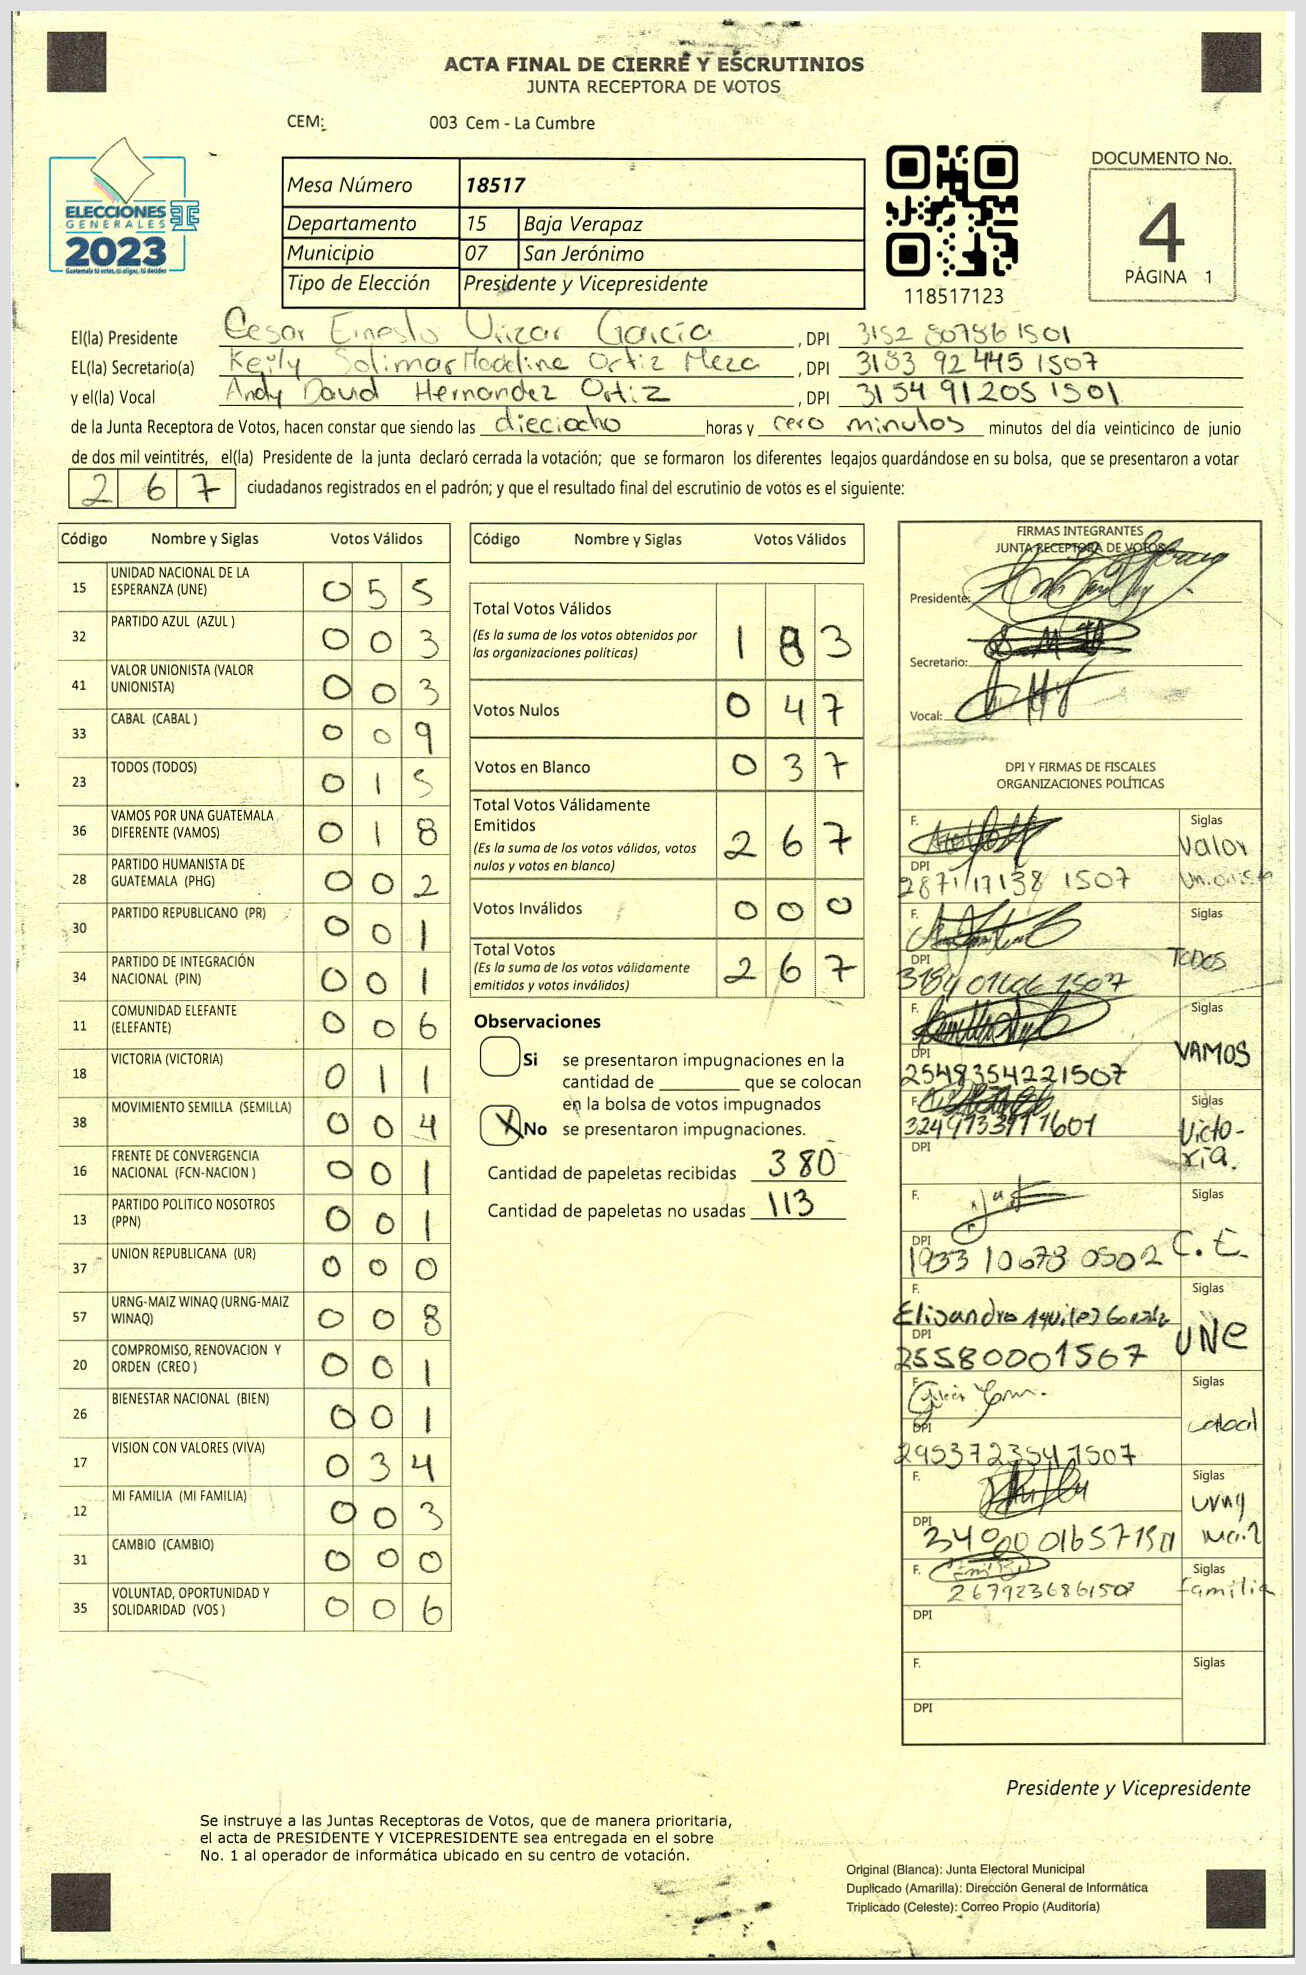 ACTA FINAL DE CIERRE Y ESCRUTINIOS
JUNTA RECEPTORA DE VOTOS
CEM: 003 Cem - La Cumbre
ELECCIONES
GENERALES
2023
Guatemala tú votas, tú eliges, tú decides
Mesa Número 18517
Departamento 15 Baja Verapaz
Municipio 07 San Jerónimo
Tipo de Elección Presidente y Vicepresidente
118517123
DOCUMENTO No.
4
PÁGINA 1
El(la) Presidente Cesar Ernesto Urizar García , DPI 3152 80786 1501
EL(la) Secretario(a) Keily Solimar Madeline Ortiz Meza , DPI 3183 92445 1507
y el(la) Vocal Andy David Hernandez Ortiz , DPI 3154 91205 1501
de la Junta Receptora de Votos, hacen constar que siendo las dieciocho horas y cero minutos minutos del día veinticinco de junio
de dos mil veintitrés, el(la) Presidente de la junta declaró cerrada la votación; que se formaron los diferentes legajos quardándose en su bolsa, que se presentaron a votar
267 ciudadanos registrados en el padrón; y que el resultado final del escrutinio de votos es el siguiente:
Código Nombre y Siglas Votos Válidos
15 UNIDAD NACIONAL DE LA
ESPERANZA (UNE) 055
32 PARTIDO AZUL (AZUL ) 003
41 VALOR UNIONISTA (VALOR
UNIONISTA) 003
33 CABAL (CABAL ) 009
23 TODOS (TODOS) 015
36 VAMOS POR UNA GUATEMALA
DIFERENTE (VAMOS) 018
28 PARTIDO HUMANISTA DE
GUATEMALA (PHG) 002
30 PARTIDO REPUBLICANO (PR) 001
34 PARTIDO DE INTEGRACIÓN
NACIONAL (PIN) 001
11 COMUNIDAD ELEFANTE
(ELEFANTE) 006
18 VICTORIA (VICTORIA) 011
38 MOVIMIENTO SEMILLA (SEMILLA) 004
16 FRENTE DE CONVERGENCIA
NACIONAL (FCN-NACION ) 001
13 PARTIDO POLITICO NOSOTROS
(PPN) 001
37 UNION REPUBLICANA (UR) 000
57 URNG-MAIZ WINAQ (URNG-MAIZ
WINAQ) 008
20 COMPROMISO, RENOVACION Y
ORDEN (CREO ) 001
26 BIENESTAR NACIONAL (BIEN) 001
17 VISION CON VALORES (VIVA) 034
12 MI FAMILIA (MI FAMILIA) 003
31 CAMBIO (CAMBIO) 000
35 VOLUNTAD, OPORTUNIDAD Y
SOLIDARIDAD (VOS ) 006
Código Nombre y Siglas Votos Válidos
Total Votos Válidos
(Es la suma de los votos obtenidos por
las organizaciones políticas) 183
Votos Nulos 047
Votos en Blanco 037
Total Votos Válidamente
Emitidos
(Es la suma de los votos válidos, votos
nulos y votos en blanco) 267
Votos Inválidos 000
Total Votos
(Es la suma de los votos válidamente
emitidos y votos inválidos) 267
Observaciones
Si se presentaron impugnaciones en la
cantidad de ________ que se colocan
en la bolsa de votos impugnados
X No se presentaron impugnaciones.
Cantidad de papeletas recibidas 380
Cantidad de papeletas no usadas 113
FIRMAS INTEGRANTES
JUNTA RECEPTORA DE VOTOS
Presidente:
Secretario:
Vocal:
DPI Y FIRMAS DE FISCALES
ORGANIZACIONES POLÍTICAS
F. Siglas
Valor
Unionista
DPI
2871 17138 1507
F. Siglas
TODOS
DPI
3184 01606 1507
F. Siglas
VAMOS
DPI
2548354221507
F. Siglas
Victo-
ria.
DPI
F. Siglas
C.E.
DPI
1933 10673 0502
F. Siglas
Elisandro
UNE
DPI
2558000 1507
F. Siglas
cabal
DPI
2953723541507
F. Siglas
urng
maiz
DPI
F. Siglas
familia
2679236861507
DPI
F. Siglas
DPI
Presidente y Vicepresidente
Se instruye a las Juntas Receptoras de Votos, que de manera prioritaria,
el acta de PRESIDENTE Y VICEPRESIDENTE sea entregada en el sobre
No. 1 al operador de informática ubicado en su centro de votación.
Original (Blanca): Junta Electoral Municipal
Duplicado (Amarilla): Dirección General de Informática
Triplicado (Celeste): Correo Propio (Auditoría)